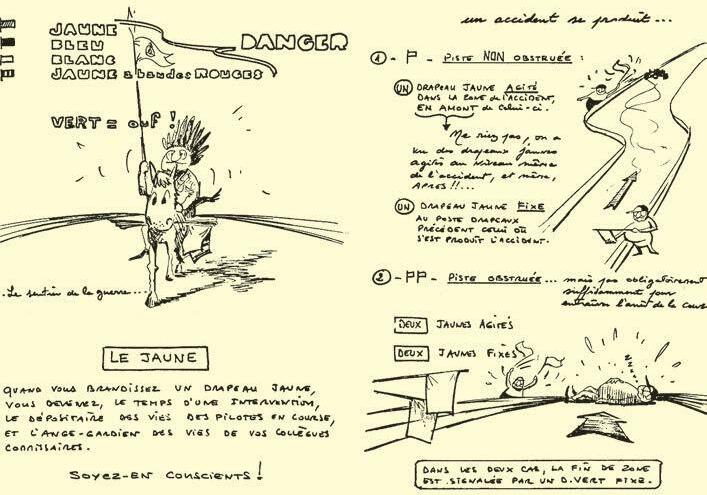 JAUNE
BLEU
BLANC
JAUNE à bandes ROUGES
DANGER
VERT = ouf !
.Le sentier de la guerre...
LE JAUNE
QUAND VOUS BRANDISSEZ UN DRAPEAU JAUNE,
VOUS DEVENEZ, LE TEMPS D'UNE INTERVENTION,
LE DÉPOSITAIRE DES VIES DES PILOTES EN COURSE,
ET L'ANGE-GARDIEN DES VIES DE VOS COLLÈGUES
COMMISSAIRES.
SOYEZ-EN CONSCIENTS !
un accident se produit...
1 - P - PISTE NON OBSTRUÉE :
UN DRAPEAU JAUNE AGITÉ
DANS LA ZONE de l'ACCIDENT,
EN AMONT de celui-ci.
Ne riez pas, on a
vu des drapeaux jaunes
agités au niveau même
de l'accident, et même,
APRES !!...
UN DRAPEAU JAUNE FIXE
AU POSTE DRAPEAUX
PRÉCÉDENT CELUI OÙ
S'EST PRODUIT L'ACCIDENT.
2 - PP - PISTE OBSTRUÉE... mais pas obligatoirement
suffisamment pour
entraîner l'arrêt de la course
DEUX JAUNES AGITÉS
DEUX JAUNES FIXES
zzz
DANS LES DEUX CAS, LA FIN DE ZONE
EST SIGNALÉE PAR UN D.VERT FIXE.